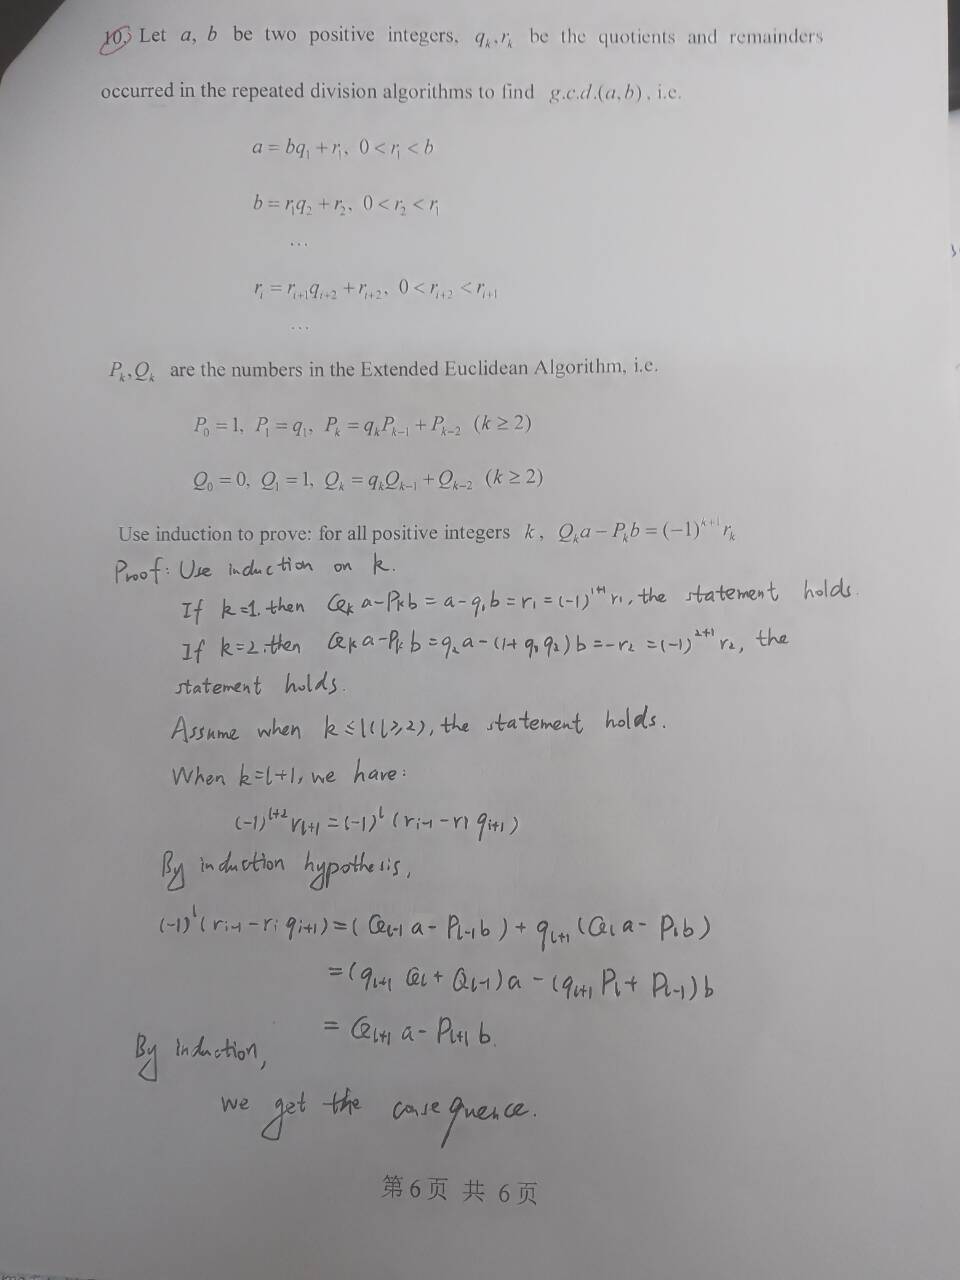 10. Let a, b be two positive integers, qₖ, rₖ be the quotients and remainders
occurred in the repeated division algorithms to find g.c.d.(a,b), i.e.
a = bq₁ + r₁, 0 < r₁ < b
b = r₁q₂ + r₂, 0 < r₂ < r₁
...
rᵢ = rᵢ₊₁qᵢ₊₂ + rᵢ₊₂, 0 < rᵢ₊₂ < rᵢ₊₁
...
Pₖ, Qₖ are the numbers in the Extended Euclidean Algorithm, i.e.
P₀ = 1, P₁ = q₁, Pₖ = qₖPₖ₋₁ + Pₖ₋₂ (k ≥ 2)
Q₀ = 0, Q₁ = 1, Qₖ = qₖQₖ₋₁ + Qₖ₋₂ (k ≥ 2)
Use induction to prove: for all positive integers k, Qₖa − Pₖb = (−1)ᵏ⁺¹rₖ
Proof: Use induction on k.
If k=1, then Qₖ a − Pₖ b = a − q₁b = r₁ = (−1)¹⁺¹ r₁, the statement holds.
If k=2, then Qₖ a − Pₖ b = q₂a − (1+q₁q₂)b = −r₂ = (−1)²⁺¹ r₂, the
statement holds.
Assume when k ≤ l (l ≥ 2), the statement holds.
When k = l+1, we have:
(−1)ˡ⁺² rₗ₊₁ = (−1)ˡ (rᵢ₋₁ − rₗ qᵢ₊₁)
By induction hypothesis,
(−1)ˡ (rᵢ₋₁ − rᵢ qᵢ₊₁) = (Qₗ₋₁ a − Pₗ₋₁ b) + qₗ₊₁ (Qₗ a − Pₗ b)
= (qₗ₊₁ Qₗ + Qₗ₋₁) a − (qₗ₊₁ Pₗ + Pₗ₋₁) b
= Qₗ₊₁ a − Pₗ₊₁ b.
By induction,
we get the consequence.
第 6 页 共 6 页